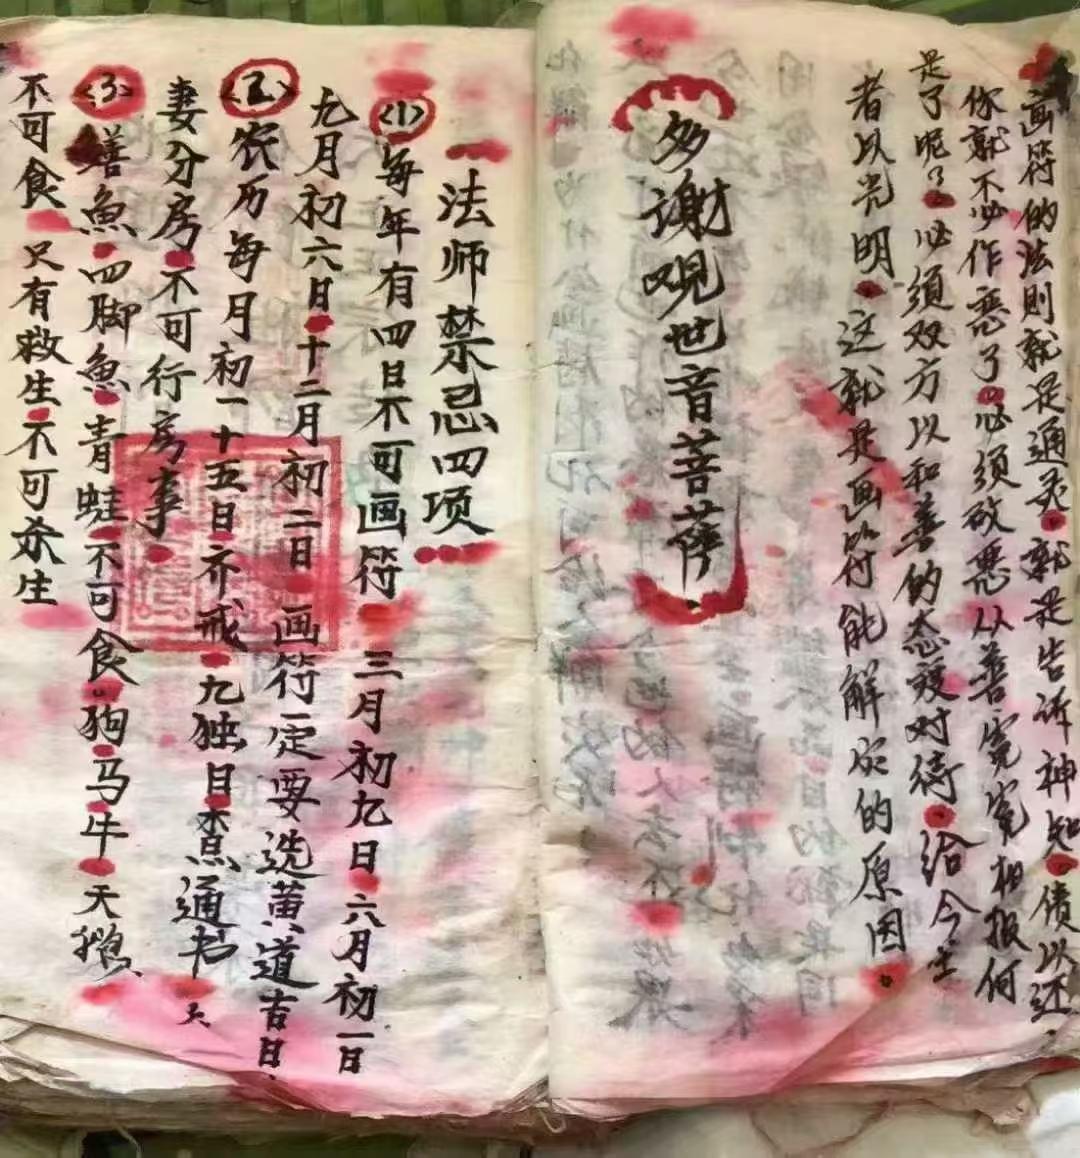 画符的法则就是通灵。就是告诉神知。债以还、
你就不必作恶了。必须改恶从善冤冤相报何
是了呢？必须双方以和善的态度对待。给今生
者以光明。这就是画符能解灾的原因。
多谢观世音菩萨
一法师禁忌四项
<1>每年有四日不可画符 三月初九日六月初一日
九月初六日十二月初二日画符一定要选黄道吉日、
<2>农历每月初一十五日齐戒九独日查通书
妻分房不可行房事 夫
<3>鳝魚四脚魚青蛙不可食。狗马牛天鹅、
不可食只有救生不可杀生